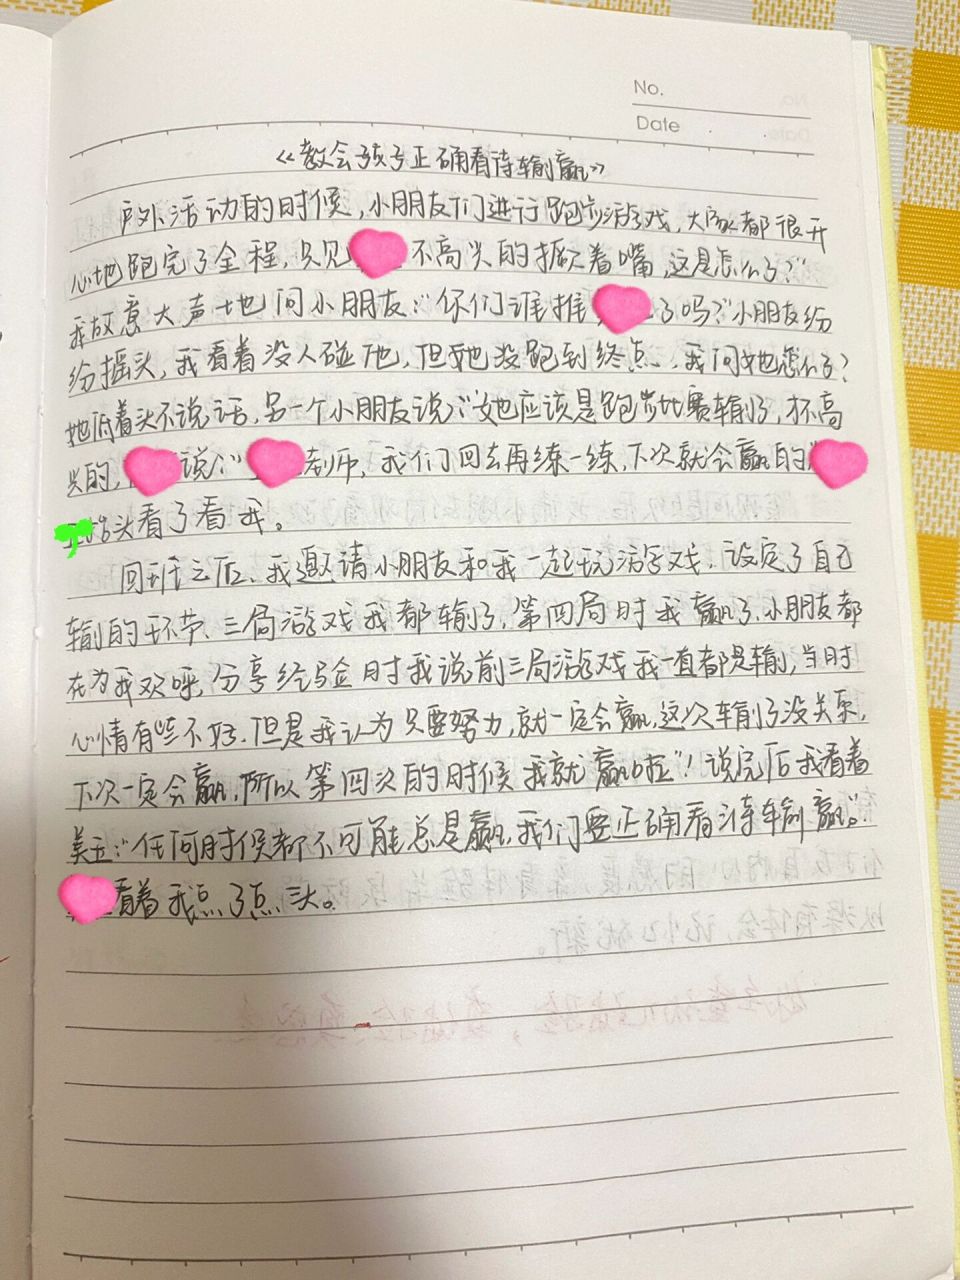 No.
Date
《教会孩子正确看待输赢》
户外活动的时候，小朋友们进行跑步游戏，大家都很开
心地跑完了全程，只见 不高兴的撅着嘴，这是怎么了？"
我故意大声地问小朋友："你们谁推 了吗？"小朋友纷
纷摇头，我看着没人碰她，但她没跑到终点，我问她怎么了？
她低着头不说话，另一个小朋友说："她应该是跑步比赛输了，才不高
兴的， 说："  老师，我们回去再练一练，下次就会赢的"
抬头看了看我。
回班之后，我邀请小朋友和我一起玩游戏，设定了自己
输的环节，三局游戏我都输了，第四局时我赢了，小朋友都
在为我欢呼，分享经验时我说前三局游戏我一直都是输，当时
心情有些不好，但是我认为只要努力，就一定会赢，这次输了没关系，
下次一定会赢，所以第四次的时候我就赢啦"！说完后我看着
美玉："任何时候都不可能总是赢，我们要正确看待输赢。"
看着我点了点头。